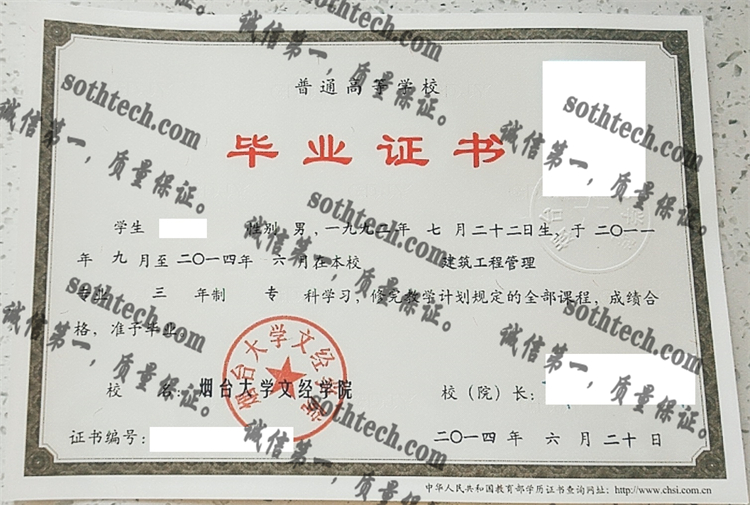 普通高等学校
毕业证书
学生 性别 男，一九九二年 七 月二十二日生，于 二〇一一
年 九 月至二〇一四年 六 月在本校 建筑工程管理
专业 三 年制 专 科学习，修完教学计划规定的全部课程，成绩合
格，准予毕业。
校 名：烟台大学文经学院 校（院）长：
证书编号： 二〇一四 年 六 月 二十 日
中华人民共和国教育部学历证书查询网址：http://www.chsi.com.cn
烟台大学文经学院
sothtech.com
诚信第一，质量保证。
sothtech.com
诚信第一，质量保证。
sothtech.com
诚信第一，质量保证。
sothtech.com
诚信第一，质量保证。
sothtech.com
诚信第一，质量保证。
sothtech.com
诚信第一，质量保证。
sothtech.com
诚信第一，质量保证。